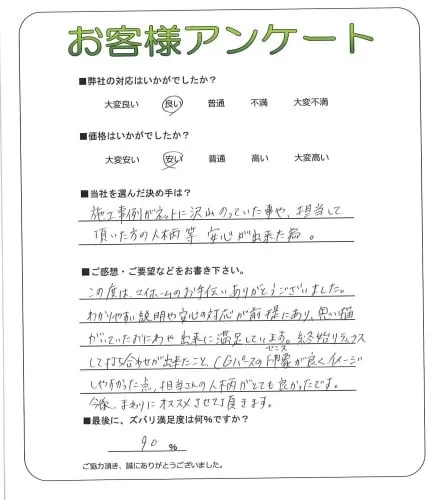 お客様アンケート
■弊社の対応はいかがでしたか？
大変良い 良い 普通 不満 大変不満
■価格はいかがでしたか？
大変安い 安い 普通 高い 大変高い
■当社を選んだ決め手は？
施工事例がネットに沢山のっていた事や、担当して
頂いた方の人柄等、安心が出来た為。
■ご感想・ご要望などをお書き下さい。
この度は、マイホームのお手伝いありがとうございました。
わかりやすい説明や安心の対応が前提にあり、思い描
がいていたおにわや 出来に満足しています。終始リラックス
して打ち合わせが出来たこと、CGパースの印象が良くイメージ
センス
しやすかった点、担当さんの人柄がとても良かったです。
今後、まわりにオススメさせて頂きます。
■最後に、ズバリ満足度は何％ですか？
90 ％
ご協力頂き、誠にありがとうございました。